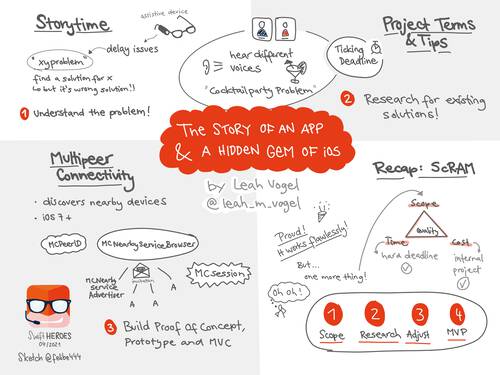 Storytime
assistive device
delay issues
"xy problem"
find a solution for x
↳ but it's wrong solution!!
1 Understand the problem!
hear different
voices
"Cocktailparty Problem"
Ticking
Deadline
Project Terms
& Tips
2 Research for existing
solutions!
The STORY OF AN APP
& A HIDDEN GEM OF iOS
by Leah Vogel
@leah_m_vogel
Multipeer
Connectivity
• discovers nearby devices
• iOS 7+
MCPeerID
MCNearbyServiceBrowser
MCNearby
service
Advertiser
invitation
A
A
A
A
MCSession
3 Build Proof of Concept,
Prototype and MVC
Swift
HEROES
04/2021
Sketch @fobbe444
Recap: ScRAM
Scope
Quality
Time
Cost
hard deadline
internal
project
Proud!
It works flawlessly!
But...
one more thing!
Oh oh!
1
2
3
4
Scope
Research
Adjust
MVP